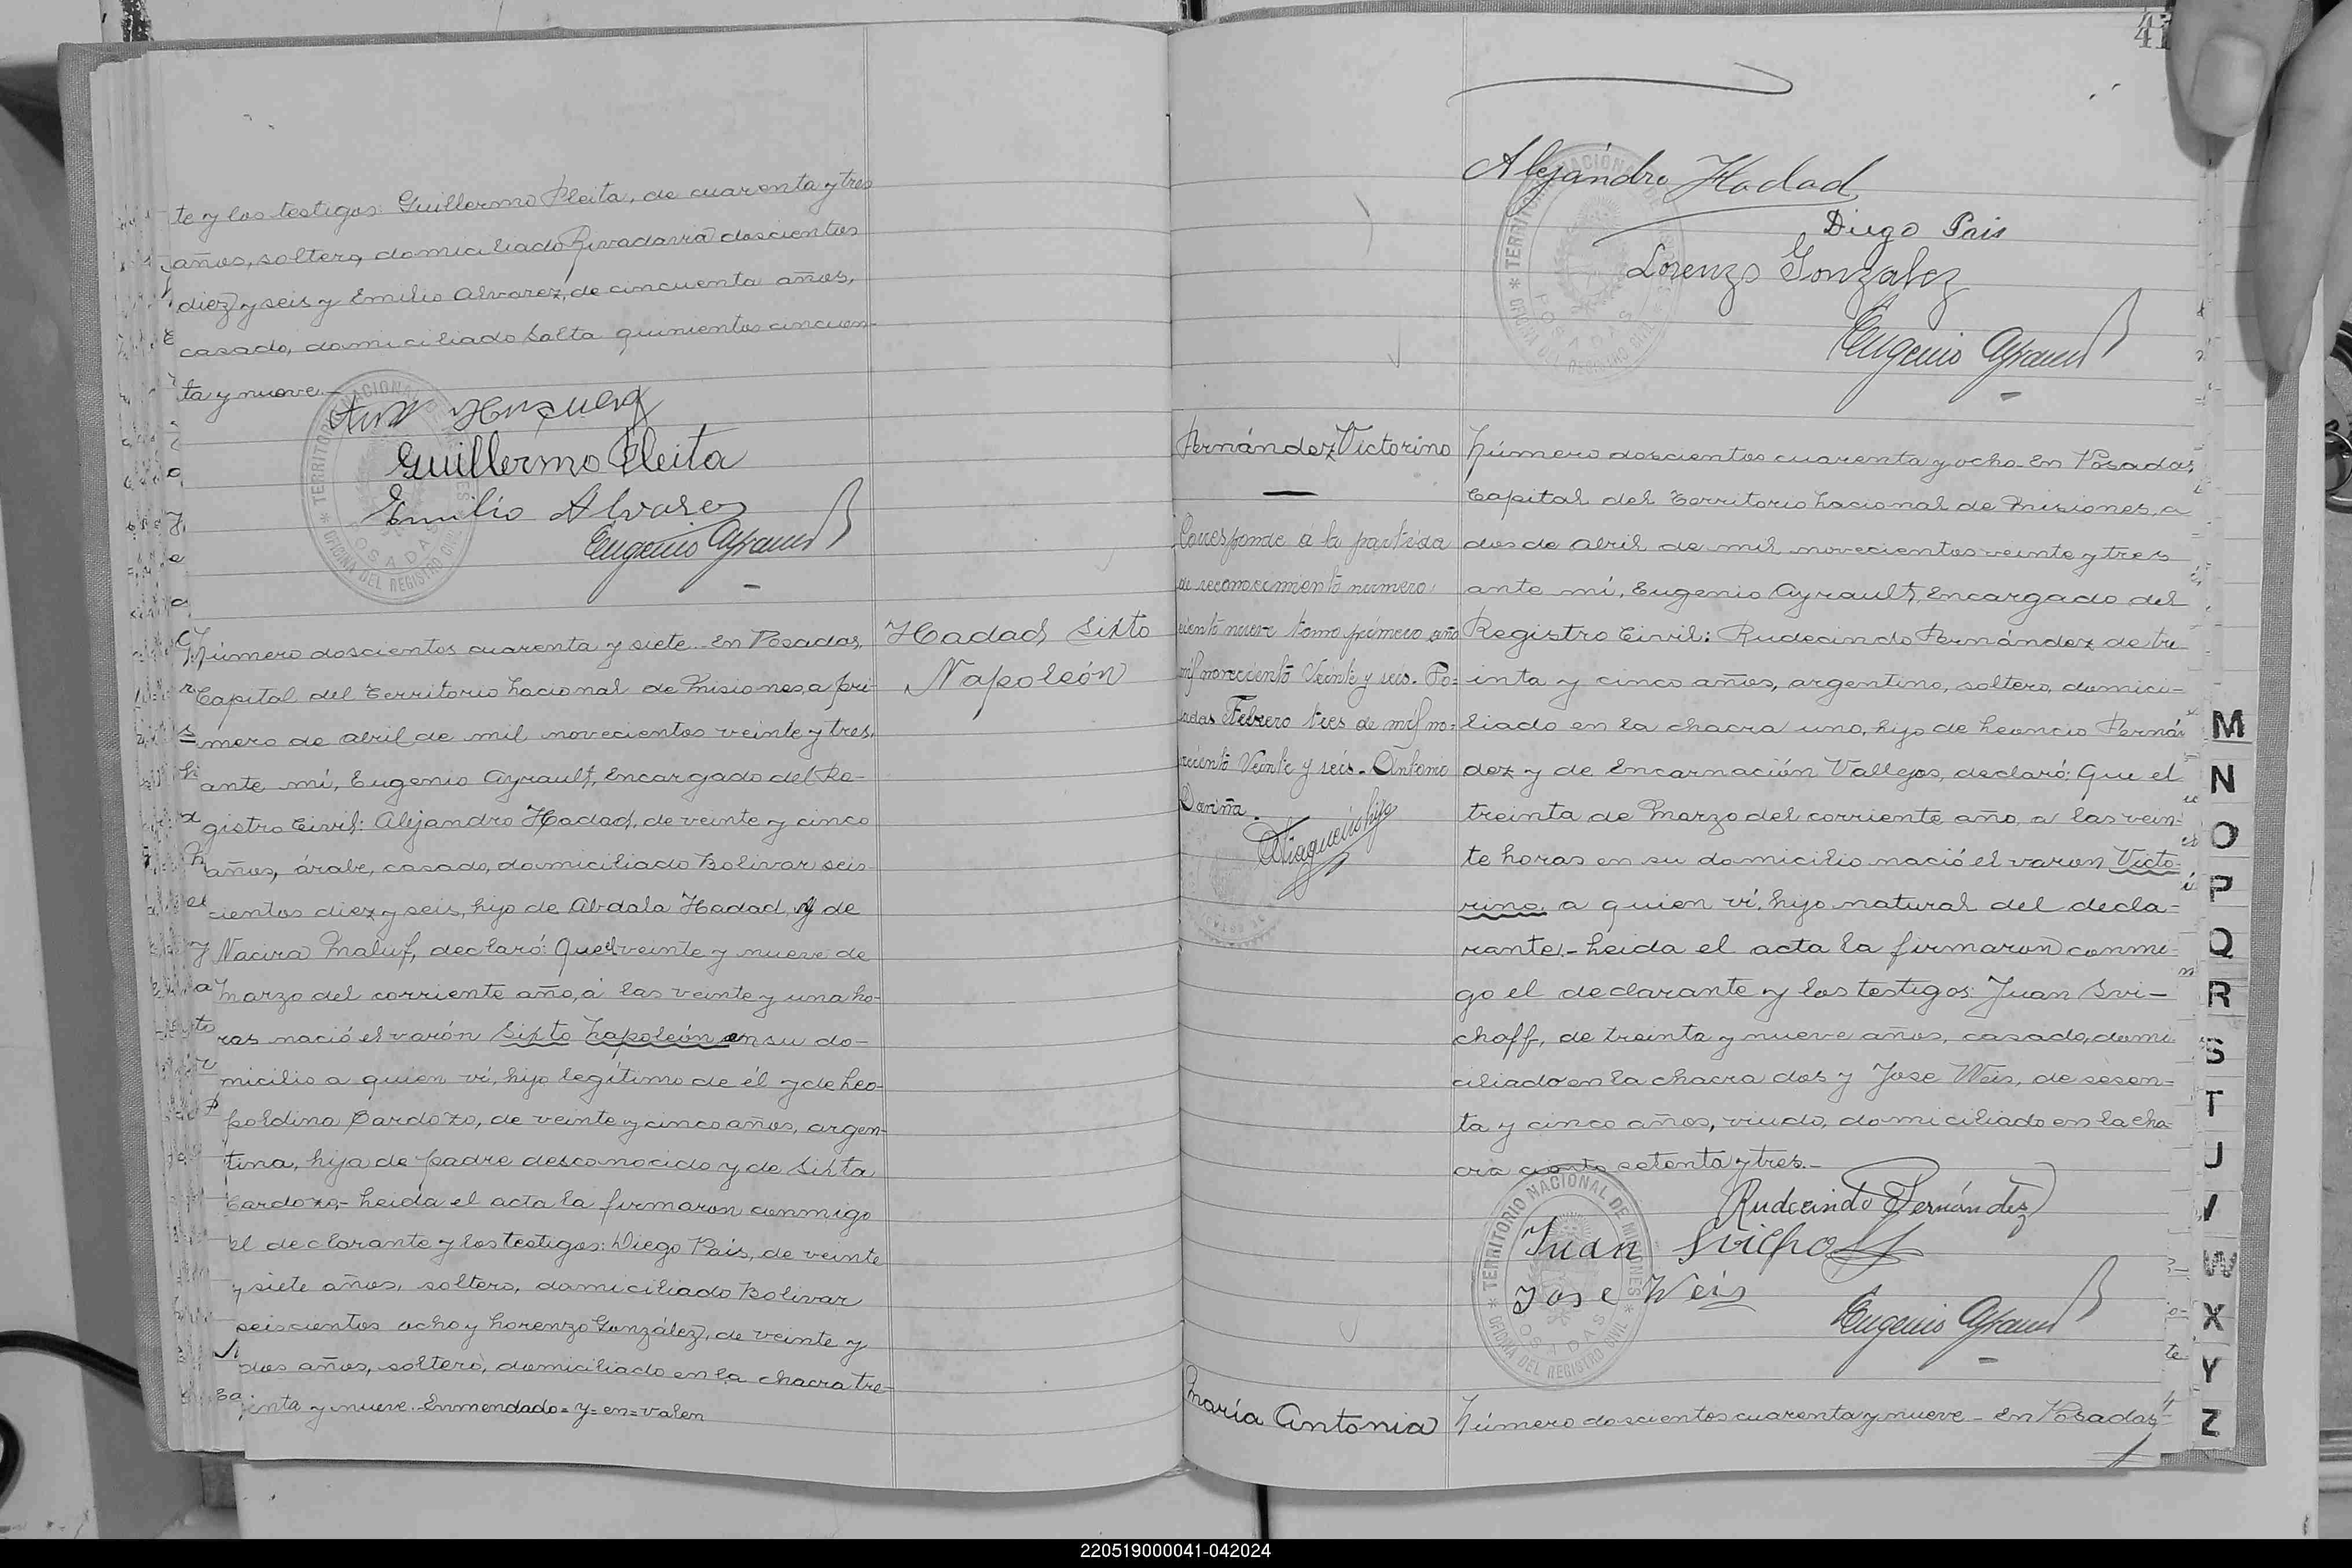 te y los testigos: Guillermo Fleita, de cuarenta y tres
años, soltero, domiciliado Rivadavia doscientos
diez y seis y Emilio Alvarez, de cincuenta años,
casado, domiciliado Salta quinientos cincuen-
ta y nueve.-
Guillermo Fleita
Emilio Alvarez
Eugenio Ayrault
Número doscientos cuarenta y siete. En Posadas,
Capital del Territorio Nacional de Misiones, a pri-
mero de abril de mil novecientos veinte y tres,
ante mí, Eugenio Ayrault, Encargado del Re-
gistro Civil: Alejandro Hadad, de veinte y cinco
años, árabe, casado, domiciliado Bolivar seis-
cientos diez y seis, hijo de Abdala Hadad y de
Nacira Maluf, declaró: Que el veinte y nueve de
Marzo del corriente año, a las veinte y una ho-
ras nació el varón Sixto Napoleón en su do-
micilio a quien ví, hijo legítimo de él y de Leo-
poldina Cardozo, de veinte y cinco años, argen-
tina, hija de padre desconocido y de Sixta
Cardozo.- Leida el acta la firmaron conmigo
el declarante y los testigos: Diego Pais, de veinte
y siete años, soltero, domiciliado Bolivar
seiscientos ocho y Lorenzo González, de veinte y
dos años, soltero, domiciliado en la chacra tre-
inta y nueve. Enmendado=y=en=valen
Hadad, Sixto
Napoleón
41
Alejandro Hadad
Diego Pais
Lorenzo Gonzalez
Eugenio Ayrault
TERRITORIO NACIONAL DE MISIONES
OFICINA DEL REGISTRO CIVIL
POSADAS
Fernández Victorino
Corresponde á la partida
de reconocimiento número
ciento nueve tomo primero año
mil novecientos Veinte y seis. Po-
sadas Febrero tres de mil no-
vecientos Veinte y seis.
Número doscientos cuarenta y ocho. En Posadas,
Capital del Territorio Nacional de Misiones, a
dos de Abril de mil novecientos veinte y tres
ante mí, Eugenio Ayrault, Encargado del
Registro Civil: Rudecindo Fernández de tre-
inta y cinco años, argentino, soltero, domici-
liado en la chacra uno, hijo de Leoncio Fernán
dez y de Encarnación Vallejos, declaró: Que el
treinta de Marzo del corriente año, a las vein-
te horas en su domicilio nació el varon Victo-
rino, a quien ví, hijo natural del decla-
rante.- Leida el acta la firmaron conmi-
go el declarante y los testigos: Juan Svi-
choff, de treinta y nueve años, casado, domi
ciliado en la chacra dos y Jose Weis, de sesen-
ta y cinco años, viudo, domiciliado en la cha
cra ciento setenta y tres.-
Rudecindo Fernández
Juan Svichoff
Jose Weis
Eugenio Ayrault
TERRITORIO NACIONAL DE MISIONES
OFICINA DEL REGISTRO CIVIL
POSADAS
María Antonia
Número doscientos cuarenta y nueve - En Posadas,
M
N
O
P
Q
R
S
T
U
V
W
X
Y
Z
220519000041-042024